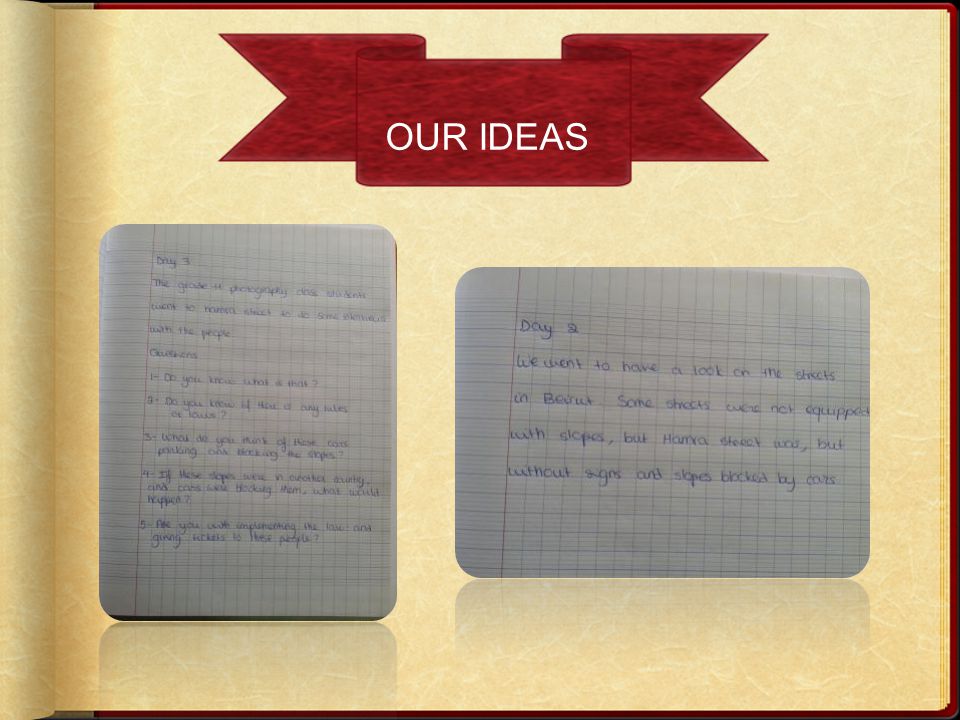 OUR IDEAS
Day 3
The grade 11 photography class students
went to hamra street to do some interviews
with the people.
Questions
1- Do you know what is that?
2- Do you know if there is any rules
or laws?
3- What do you think of these cars
parking and blocking the slopes?
4- If these slopes were in another country,
and cars were blocking them, what would
happen?
5- Are you with implementing the law and
giving tickets to these people?
Day 2
We went to have a look on the streets
in Beirut. Some streets were not equipped
with slopes, but Hamra street was, but
without signs and slopes blocked by cars